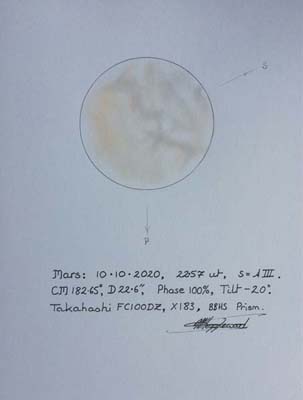 S
P
Mars: 10·10·2020, 2257 ut, S=AIII.
CM 182·65°, D 22·6", Phase 100%, Tilt -20°.
Takahashi FC100DZ, X183, BBHS Prism.